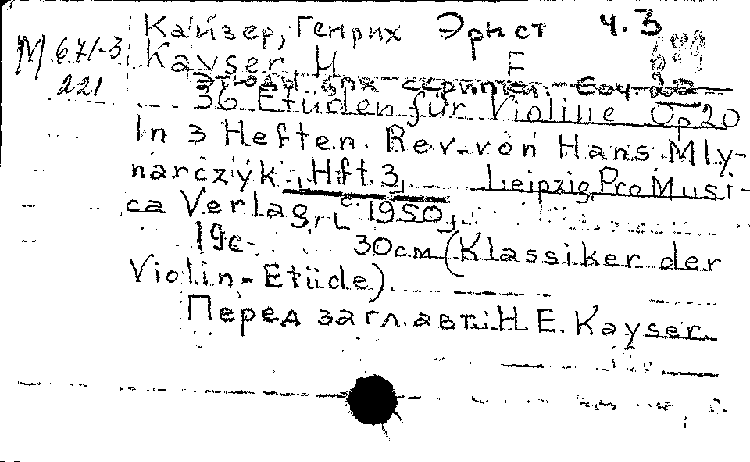 Кайзер, Генрих Эрнст ч. 3
М 671-3
221
Kayser H E
Этюды для скрипки. Соч 20
36 Etüden für Violine Op 20
In 3 Heften. Rev. von Hans Mly-
narczyk. Hft. 3, Leipzig, Pro Musi-
ca Verlag, [1950].
19с. 30см (Klassiker der
Violin-Etüde).
Перед загл. авт: H. E. Kayser.